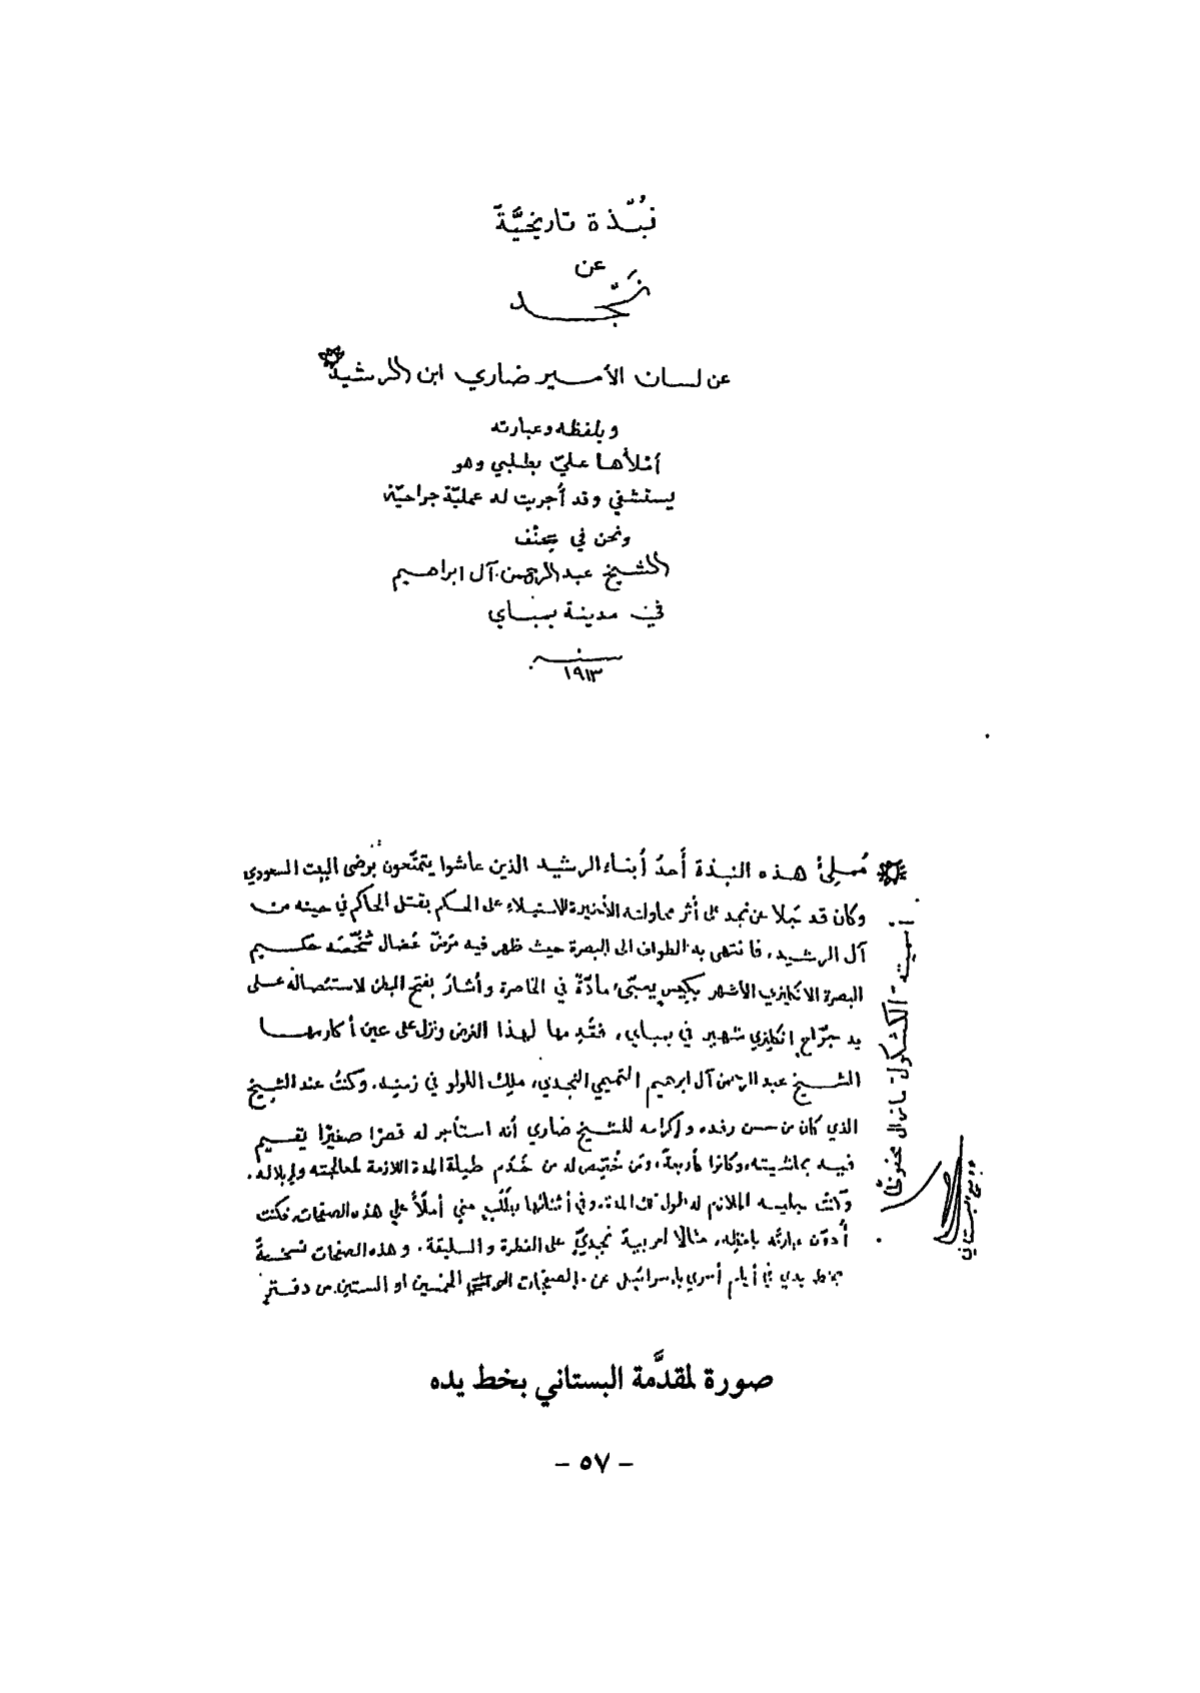 نُبّذة تاريخيَّة
عن
نَجْد
عن لسان الأمير ضاري ابن الرشيد
وبلفظه وعبارته
أملأها عليّ بطلبي وهو
يستشفي وقد أُجريت له عمليّة جراحيّة
ونحن في
الشيخ عبد الرحمن آل ابراهيم
في مدينة بمباي
سنة
١٩١٣
مُملئ هذه النبذة أحدُ أبناء الرشيد الذين عاشوا يتمتّعون برضى البيت السعودي
وكان قد جلا عن نجد على أثر محاولته الأخيرة للاستيلاء على الحكم بقتل الحاكم في حينه من
آل الرشيد، فانتهى به الطواف الى البصرة حيث ظهر فيه مرضٌ عُضال شخّصه حكيم
البصرة الانكليزي الأشهر مادّة في الخاصرة وأشار بفتح البطن لاستئصاله على
يد جرّاح انكليزي شهير في بمباي، فقدِمها لهذا الغرض ونزل على عين أكارمها
الشيخ عبد الرحمن آل ابرهيم التميمي النجدي، ملك اللولو في زمنه. وكنتُ عند الشيخ
الذي كان من حسن رفده وإكرامه للشيخ ضاري أنه استأجر له قصرًا صغيرًا يقيم
فيه بحاشيته، وكانوا أربعة، ومن خُصِّص له من خَدَم طيلة المدة اللازمة لمعالجته وإبلاله.
وكنتُ جليسه الملازم له طول تلك المدة. وفي أثنائها بطلب مني أملأ علي هذه الصفحات فكنت
أُدوّن عبارته بلفظه، مثالًا لعربية نجديّ على الفطرة والسليقة. وهذه الصفحات نسخةٌ
بخط يدي في أيام أسري بإسرائيل عن الصفحات الخمسين او الستين من دفتر
أسميته "الكشكول" ما زال محفوظًا
وديع البستاني
صورة لمقدَّمة البستاني بخط يده
– ٥٧ –